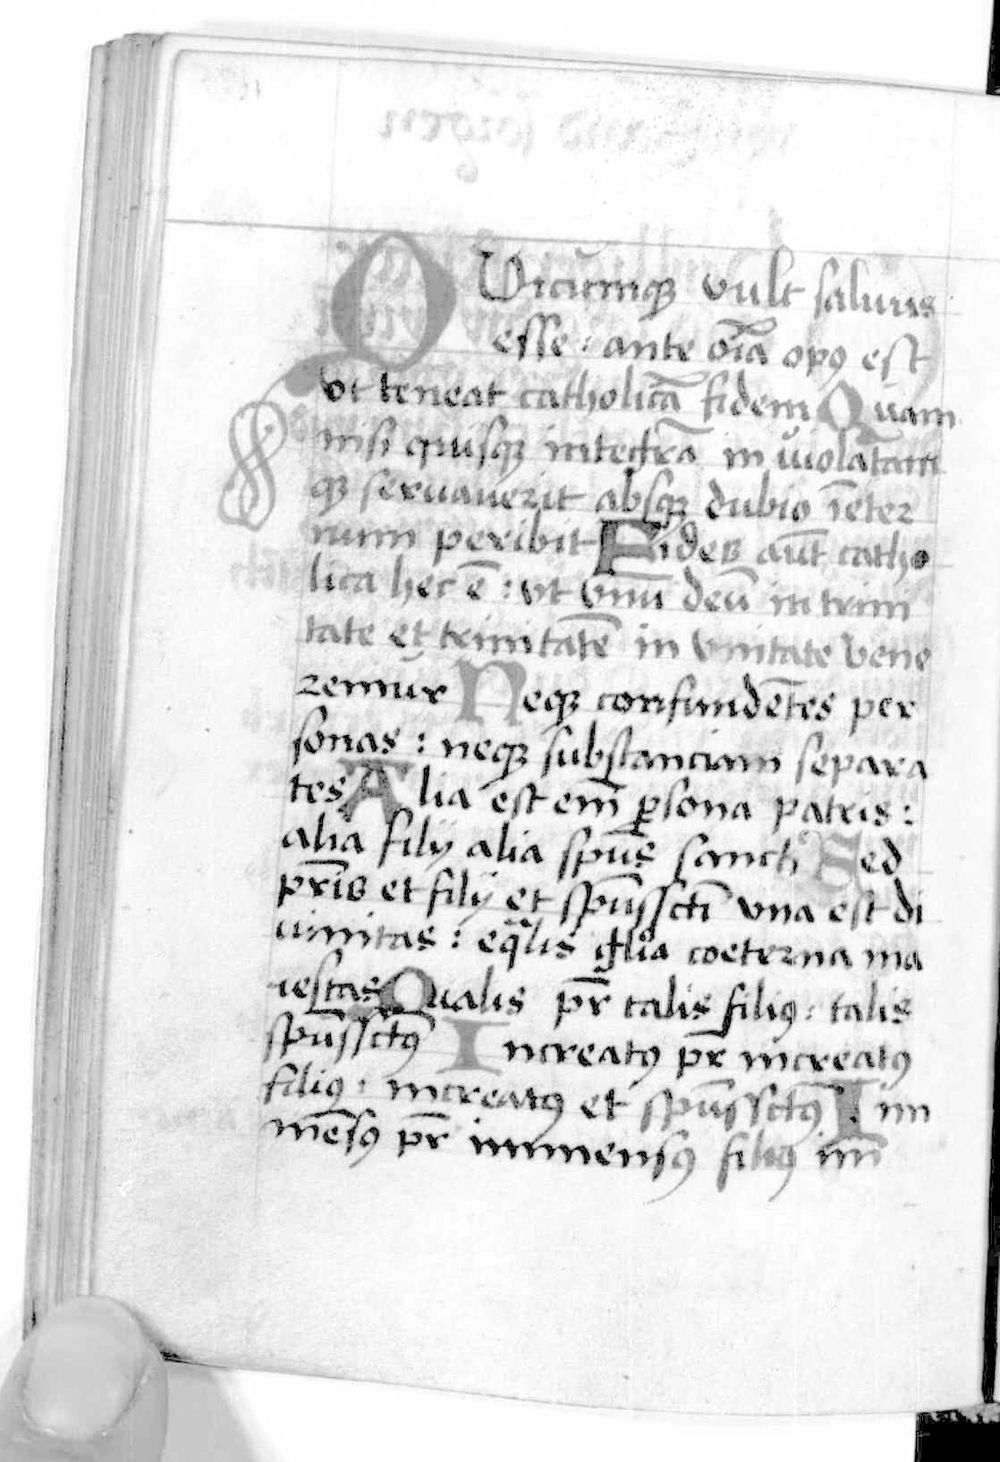 QVicumqꝫ vult saluus
esse : ante oı̄a opꝰ est
vt teneat catholicā fidem Quam
nisi quisqꝫ integrā inuiolatam
qꝫ seruauerit absqꝫ dubio ı̄eter
num peribit Fides aut̄ catho
lica hec ē : vt vnū deū in trini
tate et trinitatē in vnitate vene
remur Neqꝫ confundētes per
sonas : neqꝫ substanciam separa
tes Alia est em̄ ꝑsona patris :
alia filij alia spūs sancti Sed
pr̄is et filij et spūssctī vna est di
uinitas : eqᵃlis gl̄ia coeterna ma
iestas Qualis pr̄ talis filiꝰ : talis
spūssctꝰ Increatꝰ pr̄ increatꝰ
filiꝰ : increatꝰ et spūssctꝰ Im
mēsꝰ pr̄ immensꝰ filiꝰ im̄